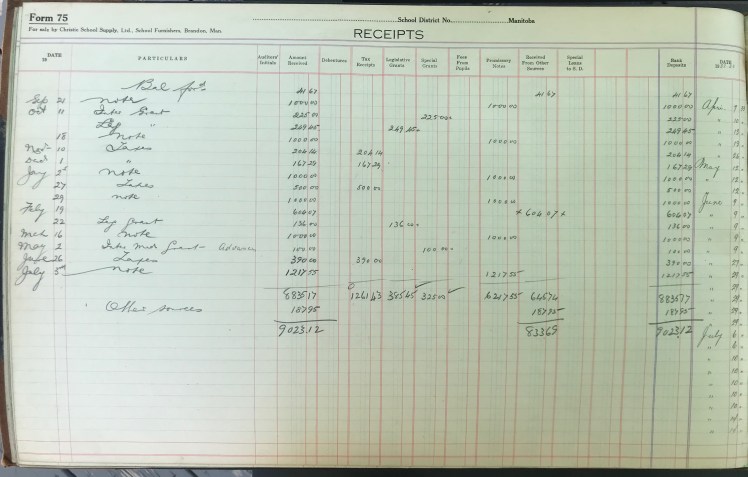 Form 75
School District No. Manitoba
For sale by Christie School Supply, Ltd., School Furnishers, Brandon, Man.
RECEIPTS
DATE 19 PARTICULARS Authori' Initials Amount Received Debentures Tax Receipts Legislative Grants Special Grants Fees From Pupils Promissory Notes Received From Other Sources Special Loans to S. D. Bank Deposits DATE
Bal for'd 41 67 41 67 41 67
Sep 21 note 1000 00 1000 00 1000 00 April 9
Oct 11 Inter Grant 225 00 225 00 225 00 " 10
Leg " 249 45 249 45 249 45 " 12
18 note 1000 00 1000 00 1000 00 " 12
Nov 10 Taxes 204 14 204 14 204 14 "
Dec 1 " 167 29 167 29 167 29 May 12
Jany 2 note 1000 00 1000 00 1000 00 " 12
27 Taxes 500 00 500 00 500 00 " 12
29 note 1000 00 1000 00 1000 00 June 9
Feby 19 604 07 + 604 07 + 604 07 " 9
22 Leg Grant 136 00 136 00 136 00 " 9
Mch 16 note 1000 00 1000 00 1000 00 " 9
May 2 Inter Mid Grant - Advance 100 00 100 00 100 00 " 9
June 26 Taxes 390 00 390 00 390 00 " 29
July 5 note 1217 55 1217 55 1217 55 " 29
8835 17 1261 43 385 45 325 00 6217 55 645 74 8835 17 " 29
Other sources 187 95 187 95 187 95 " 29
9023.12 833 69 9023.12 July 6